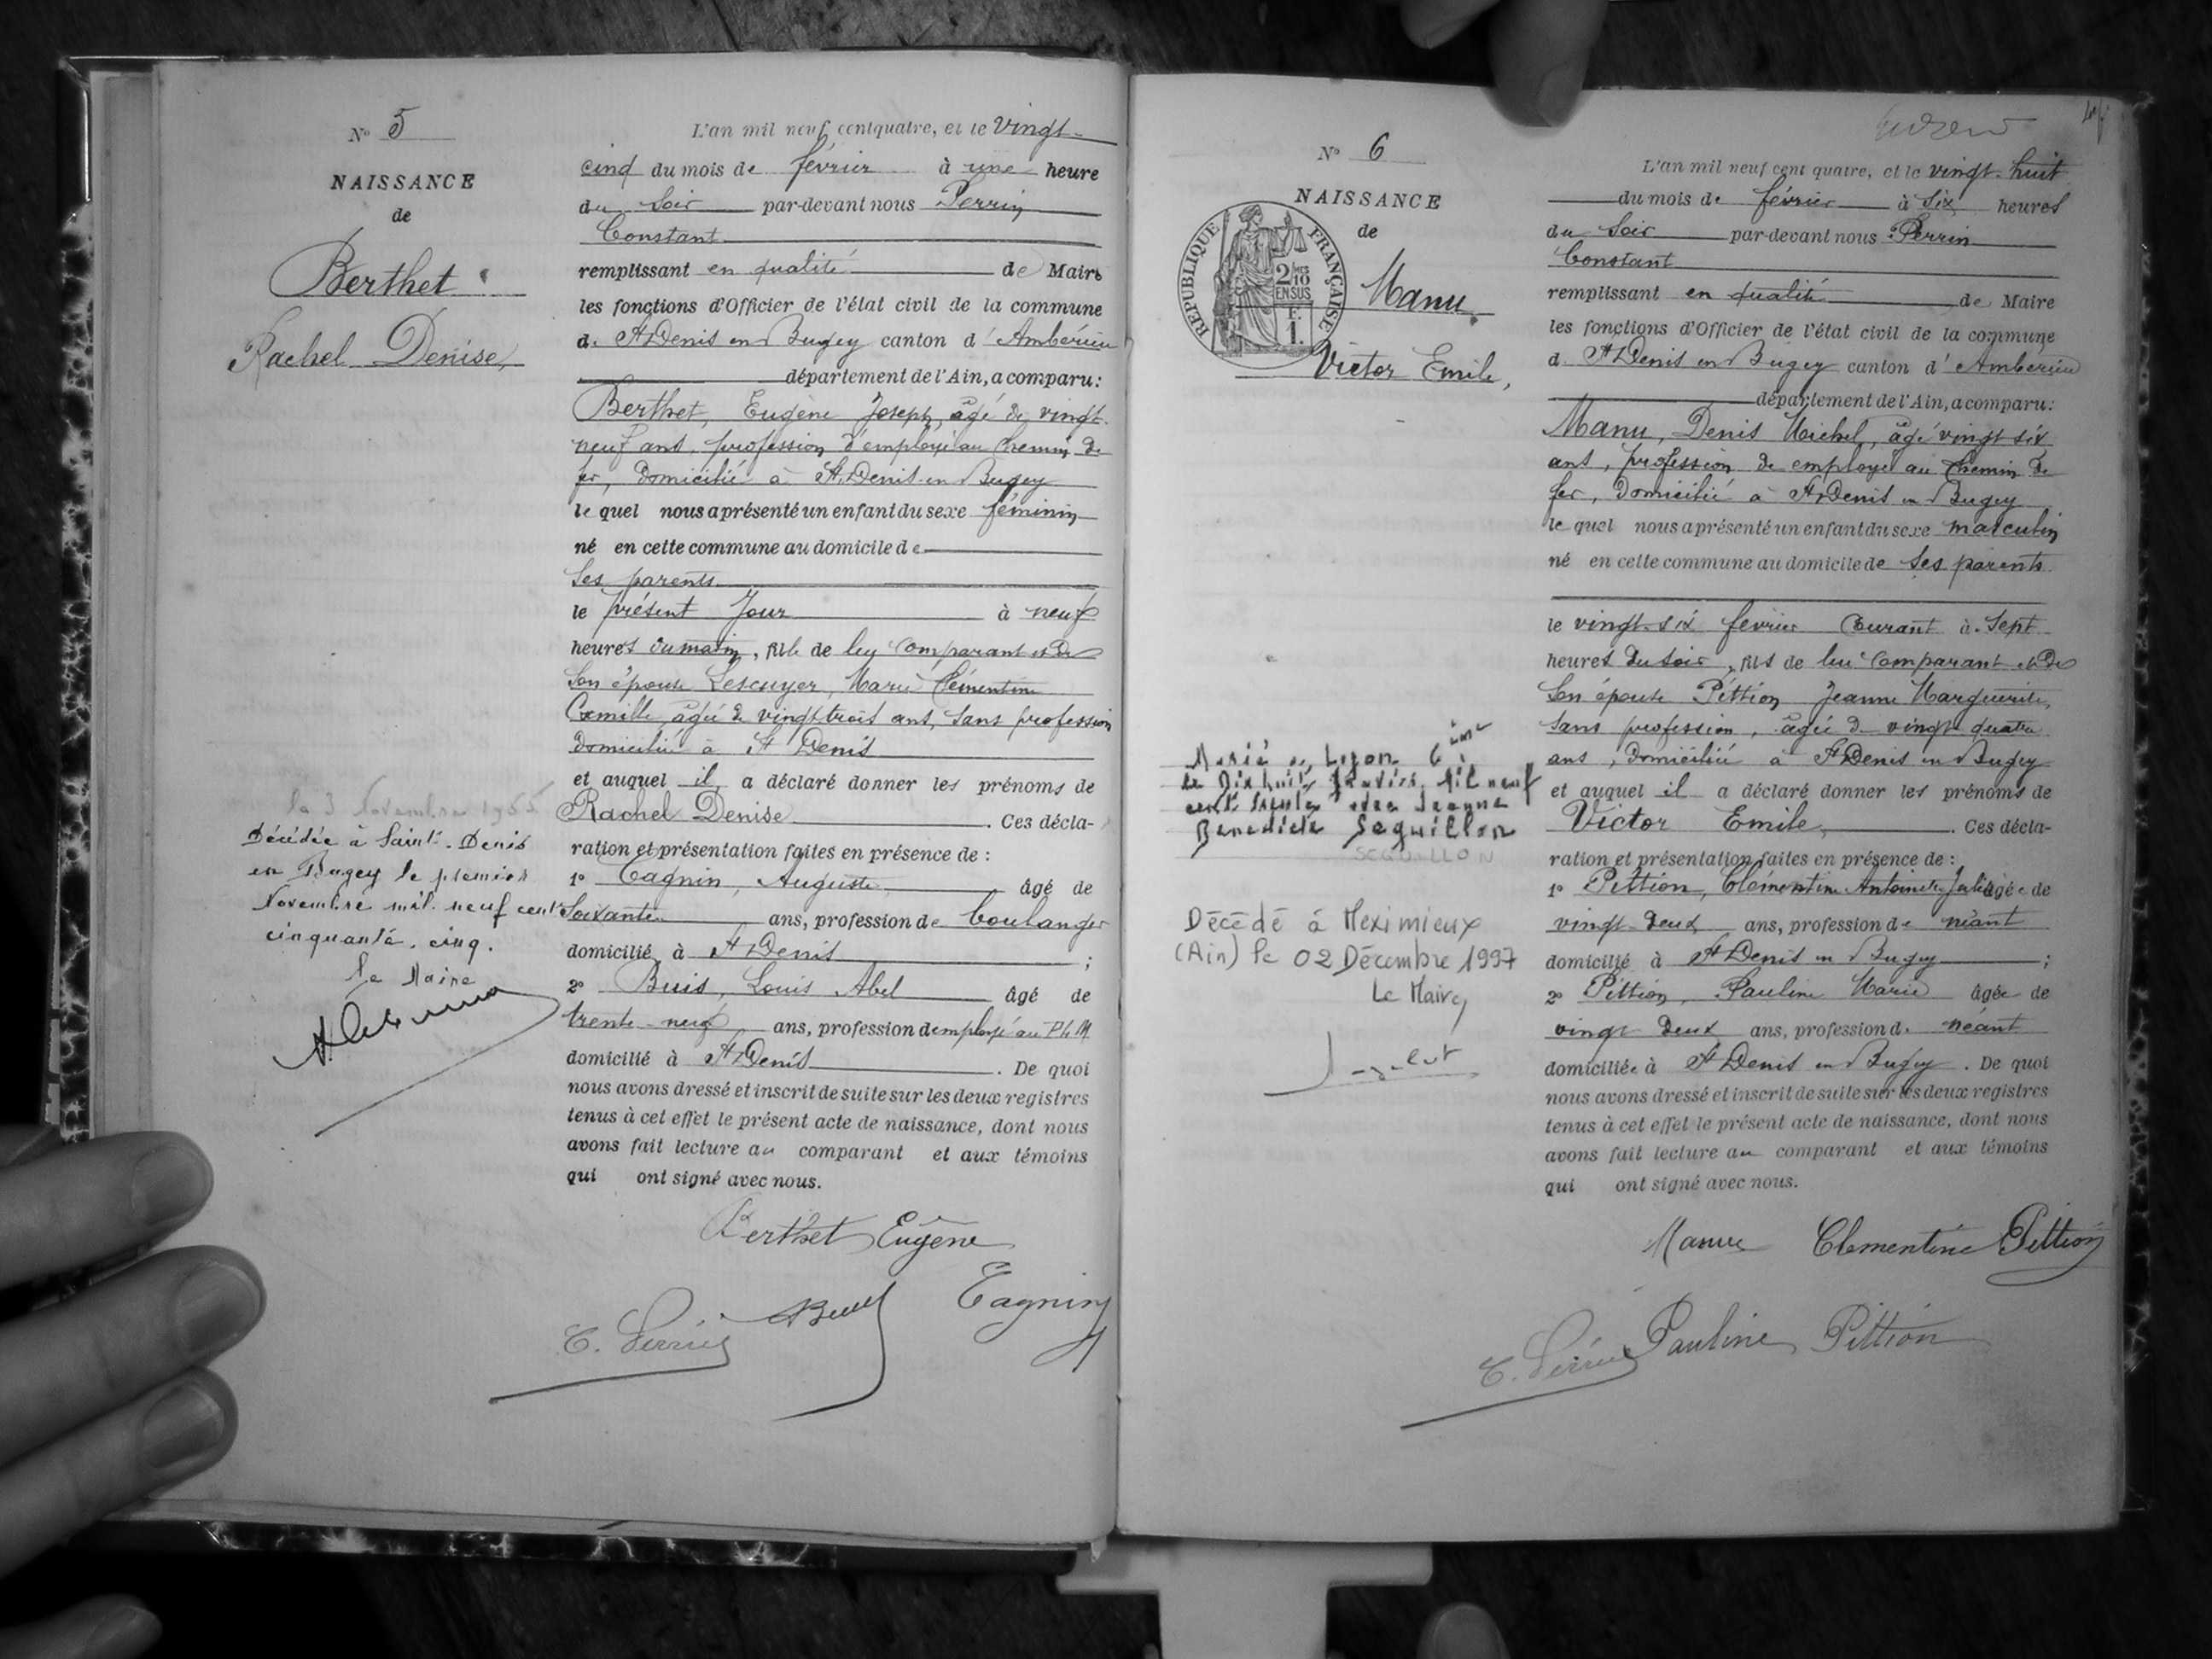 N° 5
NAISSANCE
de
Berthet
Rachel Denise,
le 3 Novembre 1955
Décédée à Saint-Denis
en Bugey le premier
Novembre mil neuf cent
cinquante-cinq.
Le Maire
L'an mil neuf cent quatre, et le vingt-
cinq du mois de février à une heure
du soir par-devant nous Perrin
Constant
remplissant en qualité de Maire
les fonctions d'Officier de l'état civil de la commune
de St Denis en Bugey canton d'Ambérieu
département de l'Ain, a comparu:
Berthet, Eugène Joseph, âgé de vingt-
neuf ans, profession d'employé au Chemin de
fer, domicilié à St Denis-en-Bugey
lequel nous a présenté un enfant du sexe féminin
né en cette commune au domicile de
ses parents
le présent jour à neuf
heures du matin, fille de lui comparant et de
son épouse Lescuyer, Marie Clémentine
Camille, âgée de vingt trois ans, sans profession
domiciliée à St Denis
et auquel il a déclaré donner les prénoms de
Rachel Denise. Ces décla-
ration et présentation faites en présence de :
1° Cagnin, Auguste âgé de
soixante ans, profession de boulanger
domicilié à St Denis ;
2° Buis, Louis Abel âgé de
trente-neuf ans, profession d'employé au P.L.M
domicilié à St Denis. De quoi
nous avons dressé et inscrit de suite sur les deux registres
tenus à cet effet le présent acte de naissance, dont nous
avons fait lecture au comparant et aux témoins
qui ont signé avec nous.
Berthet Eugène
C. Perrin ABuis Cagnin
N° 6
NAISSANCE
de
RÉPUBLIQUE FRANÇAISE
2/10
EN SUS
F.
1.
Manu
Victor Emile,
Marié à Lyon 6ème
le Dix huit Janvier mil neuf
cent trente avec Jeanne
Benedicte Seguillon
SEGUILLON
Décédé à Meximieux
(Ain) le 02 Décembre 1997
Le Maire,
L'an mil neuf cent quatre, et le vingt-huit
du mois de février à six heures
du soir par-devant nous Perrin
Constant
remplissant en qualité de Maire
les fonctions d'Officier de l'état civil de la commune
de St Denis en Bugey canton d'Ambérieu
département de l'Ain, a comparu:
Manu, Denis Michel, âgé vingt six
ans, profession de employé au Chemin de
fer, domicilié à St Denis en Bugey
lequel nous a présenté un enfant du sexe masculin
né en cette commune au domicile de ses parents
le vingt-six février courant à sept
heures du soir, fils de lui comparant et de
son épouse Pittion Jeanne Marguerite,
sans profession, âgée de vingt quatre
ans, domiciliée à St Denis en Bugey
et auquel il a déclaré donner les prénoms de
Victor Emile,. Ces décla-
ration et présentation faites en présence de :
1° Pittion, Clémentine Antoinette Julie âgée de
vingt-deux ans, profession de néant
domicilié à St Denis en Bugey ;
2° Pittion, Pauline Marie âgée de
vingt deux ans, profession de néant
domiciliée à St Denis en Bugey. De quoi
nous avons dressé et inscrit de suite sur les deux registres
tenus à cet effet le présent acte de naissance, dont nous
avons fait lecture au comparant et aux témoins
qui ont signé avec nous.
Manu Clementine Pittion
C. Perrin Pauline Pittion